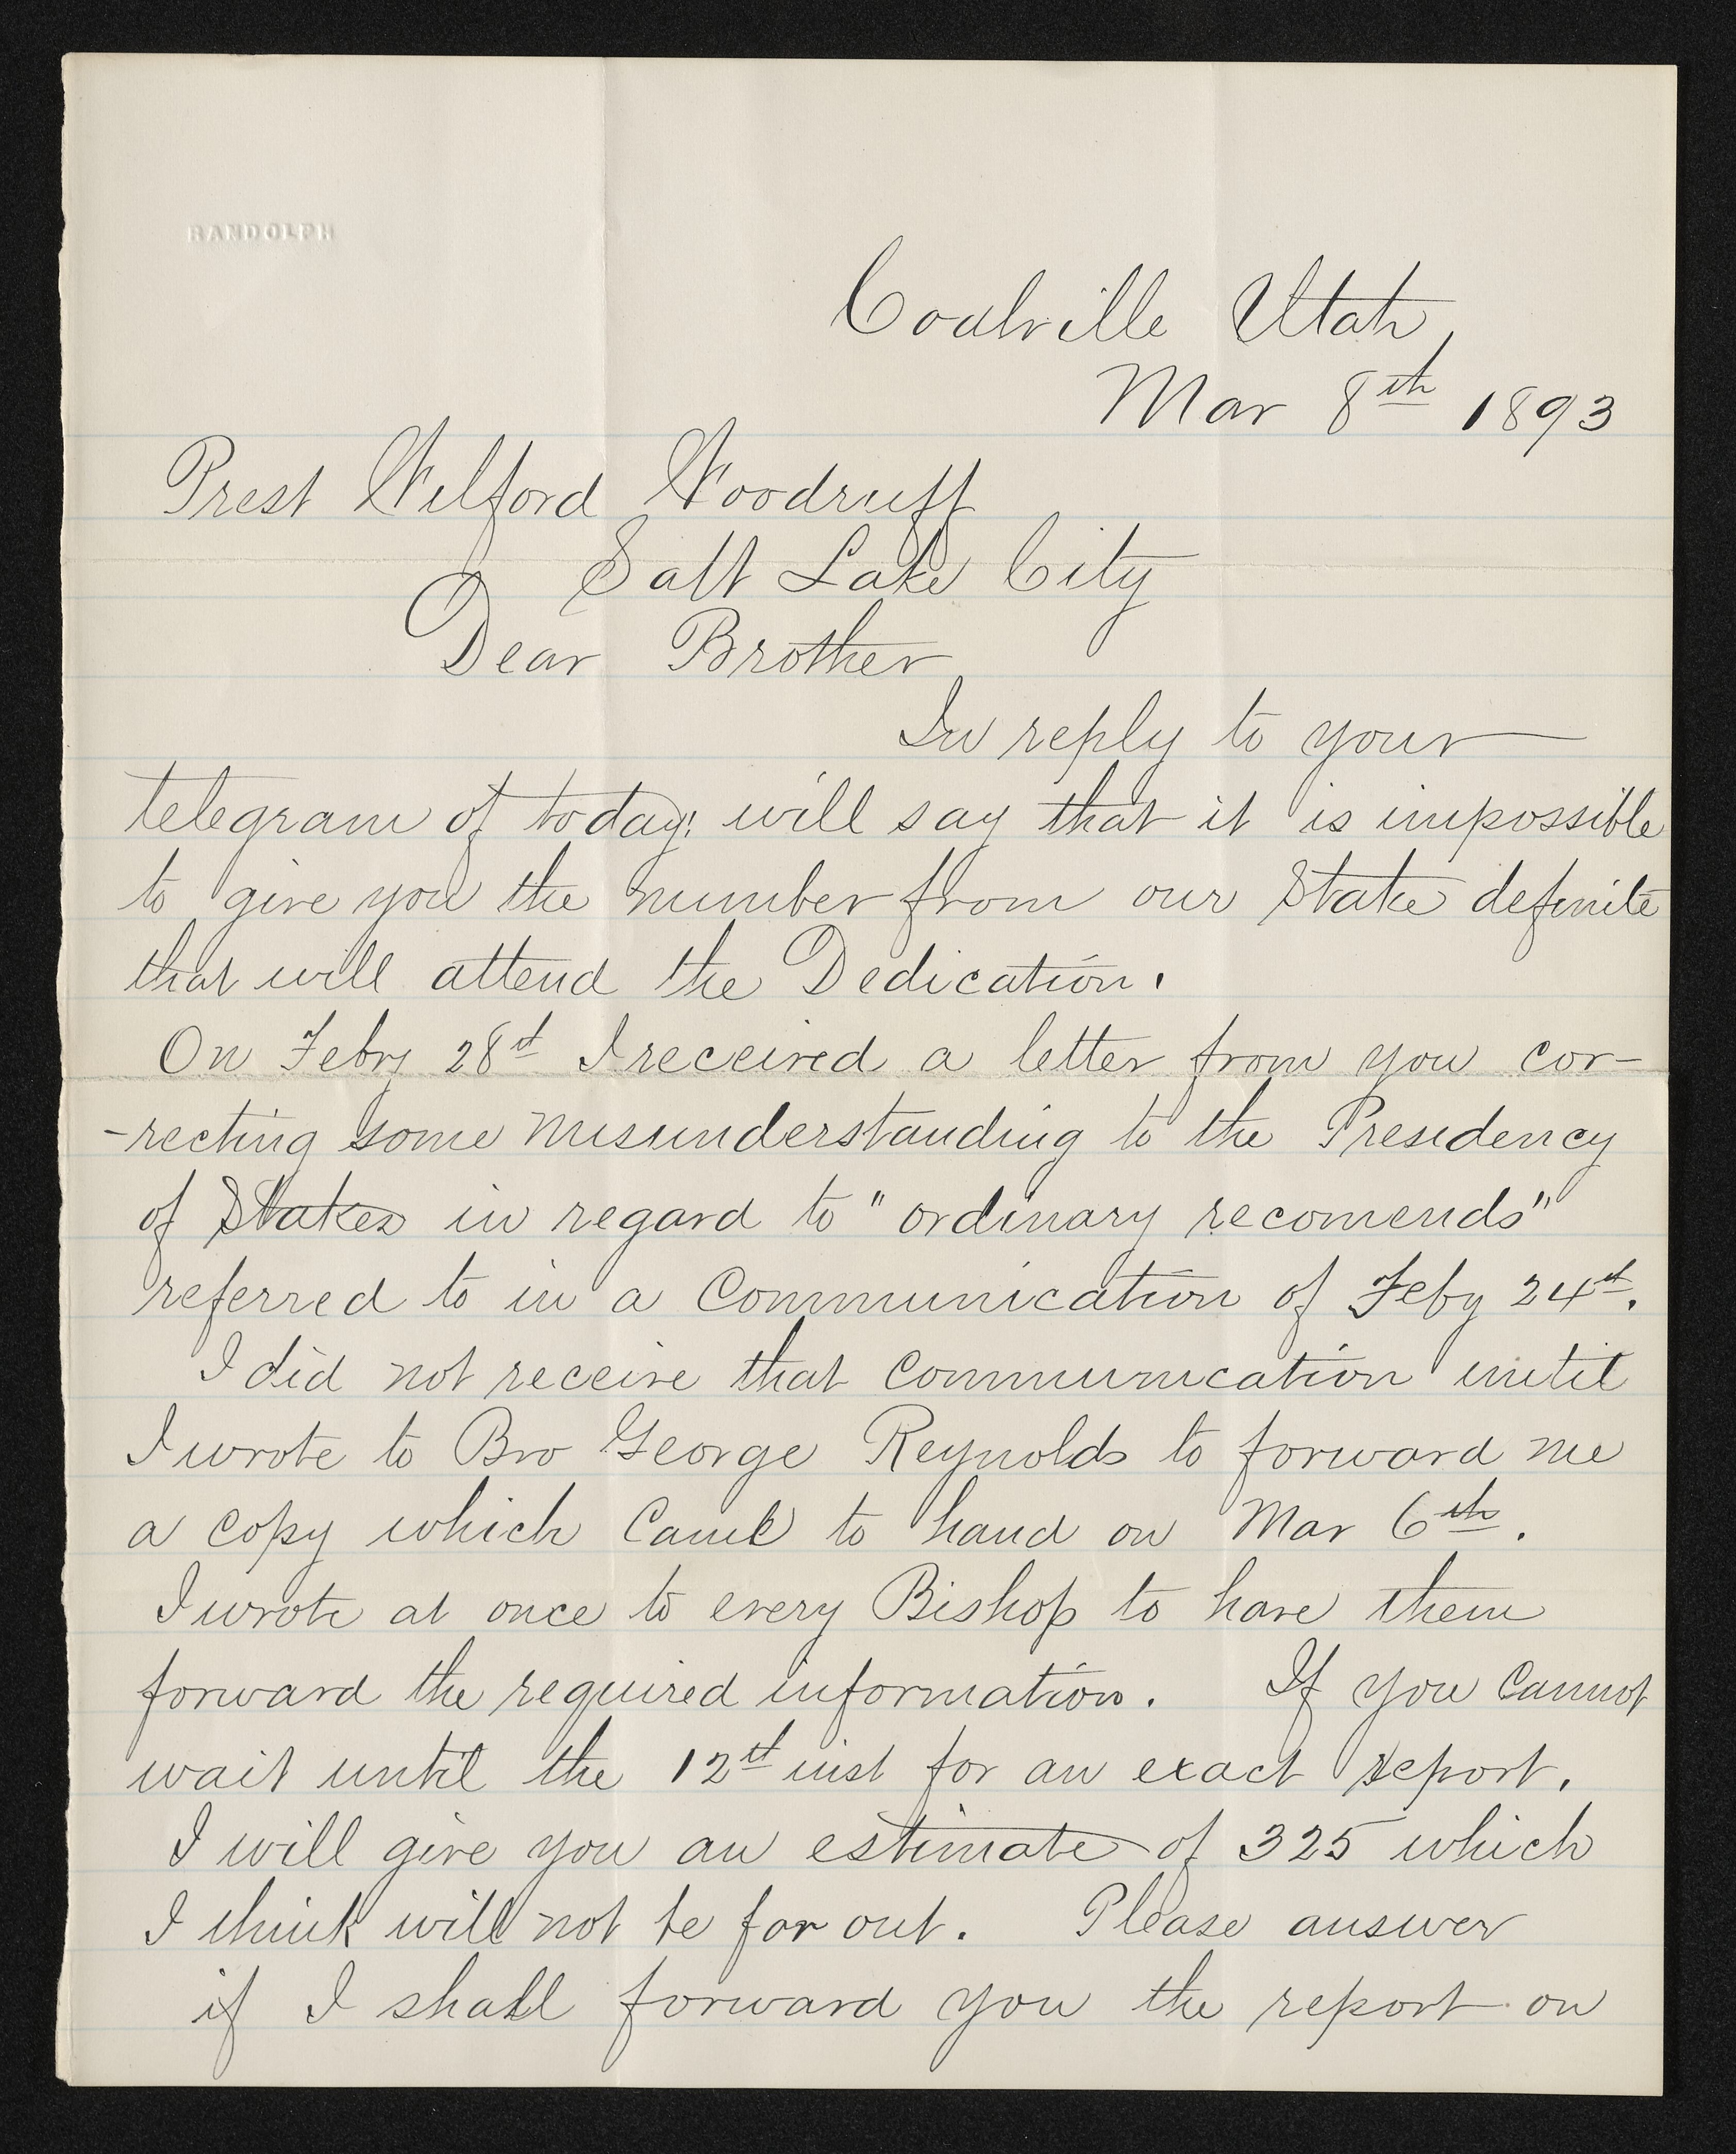 RANDOLPH
Coalville Utah,
Mar 8th 1893
Prest Wilford Woodruff
Salt Lake City
Dear Brother
In reply to your
telegram of today; will say that it is impossible
to give you the number from our Stake definite
that will attend the Dedication.
On Febry 28th I received a letter from you cor-
-recting some misunderstanding to the Presidency
of Stakes in regard to "ordinary recomends"
referred to in a Communication of Feby 24th.
I did not receive that Communication until
I wrote to Bro George Reynolds to forward me
a copy which Came to hand on Mar 6th.
I wrote at once to every Bishop to have them
forward the required information. If you Cannot
wait until the 12th inst for an exact report,
I will give you an estimate of 325 which
I think will not be far out. Please answer
if I shall forward you the report on